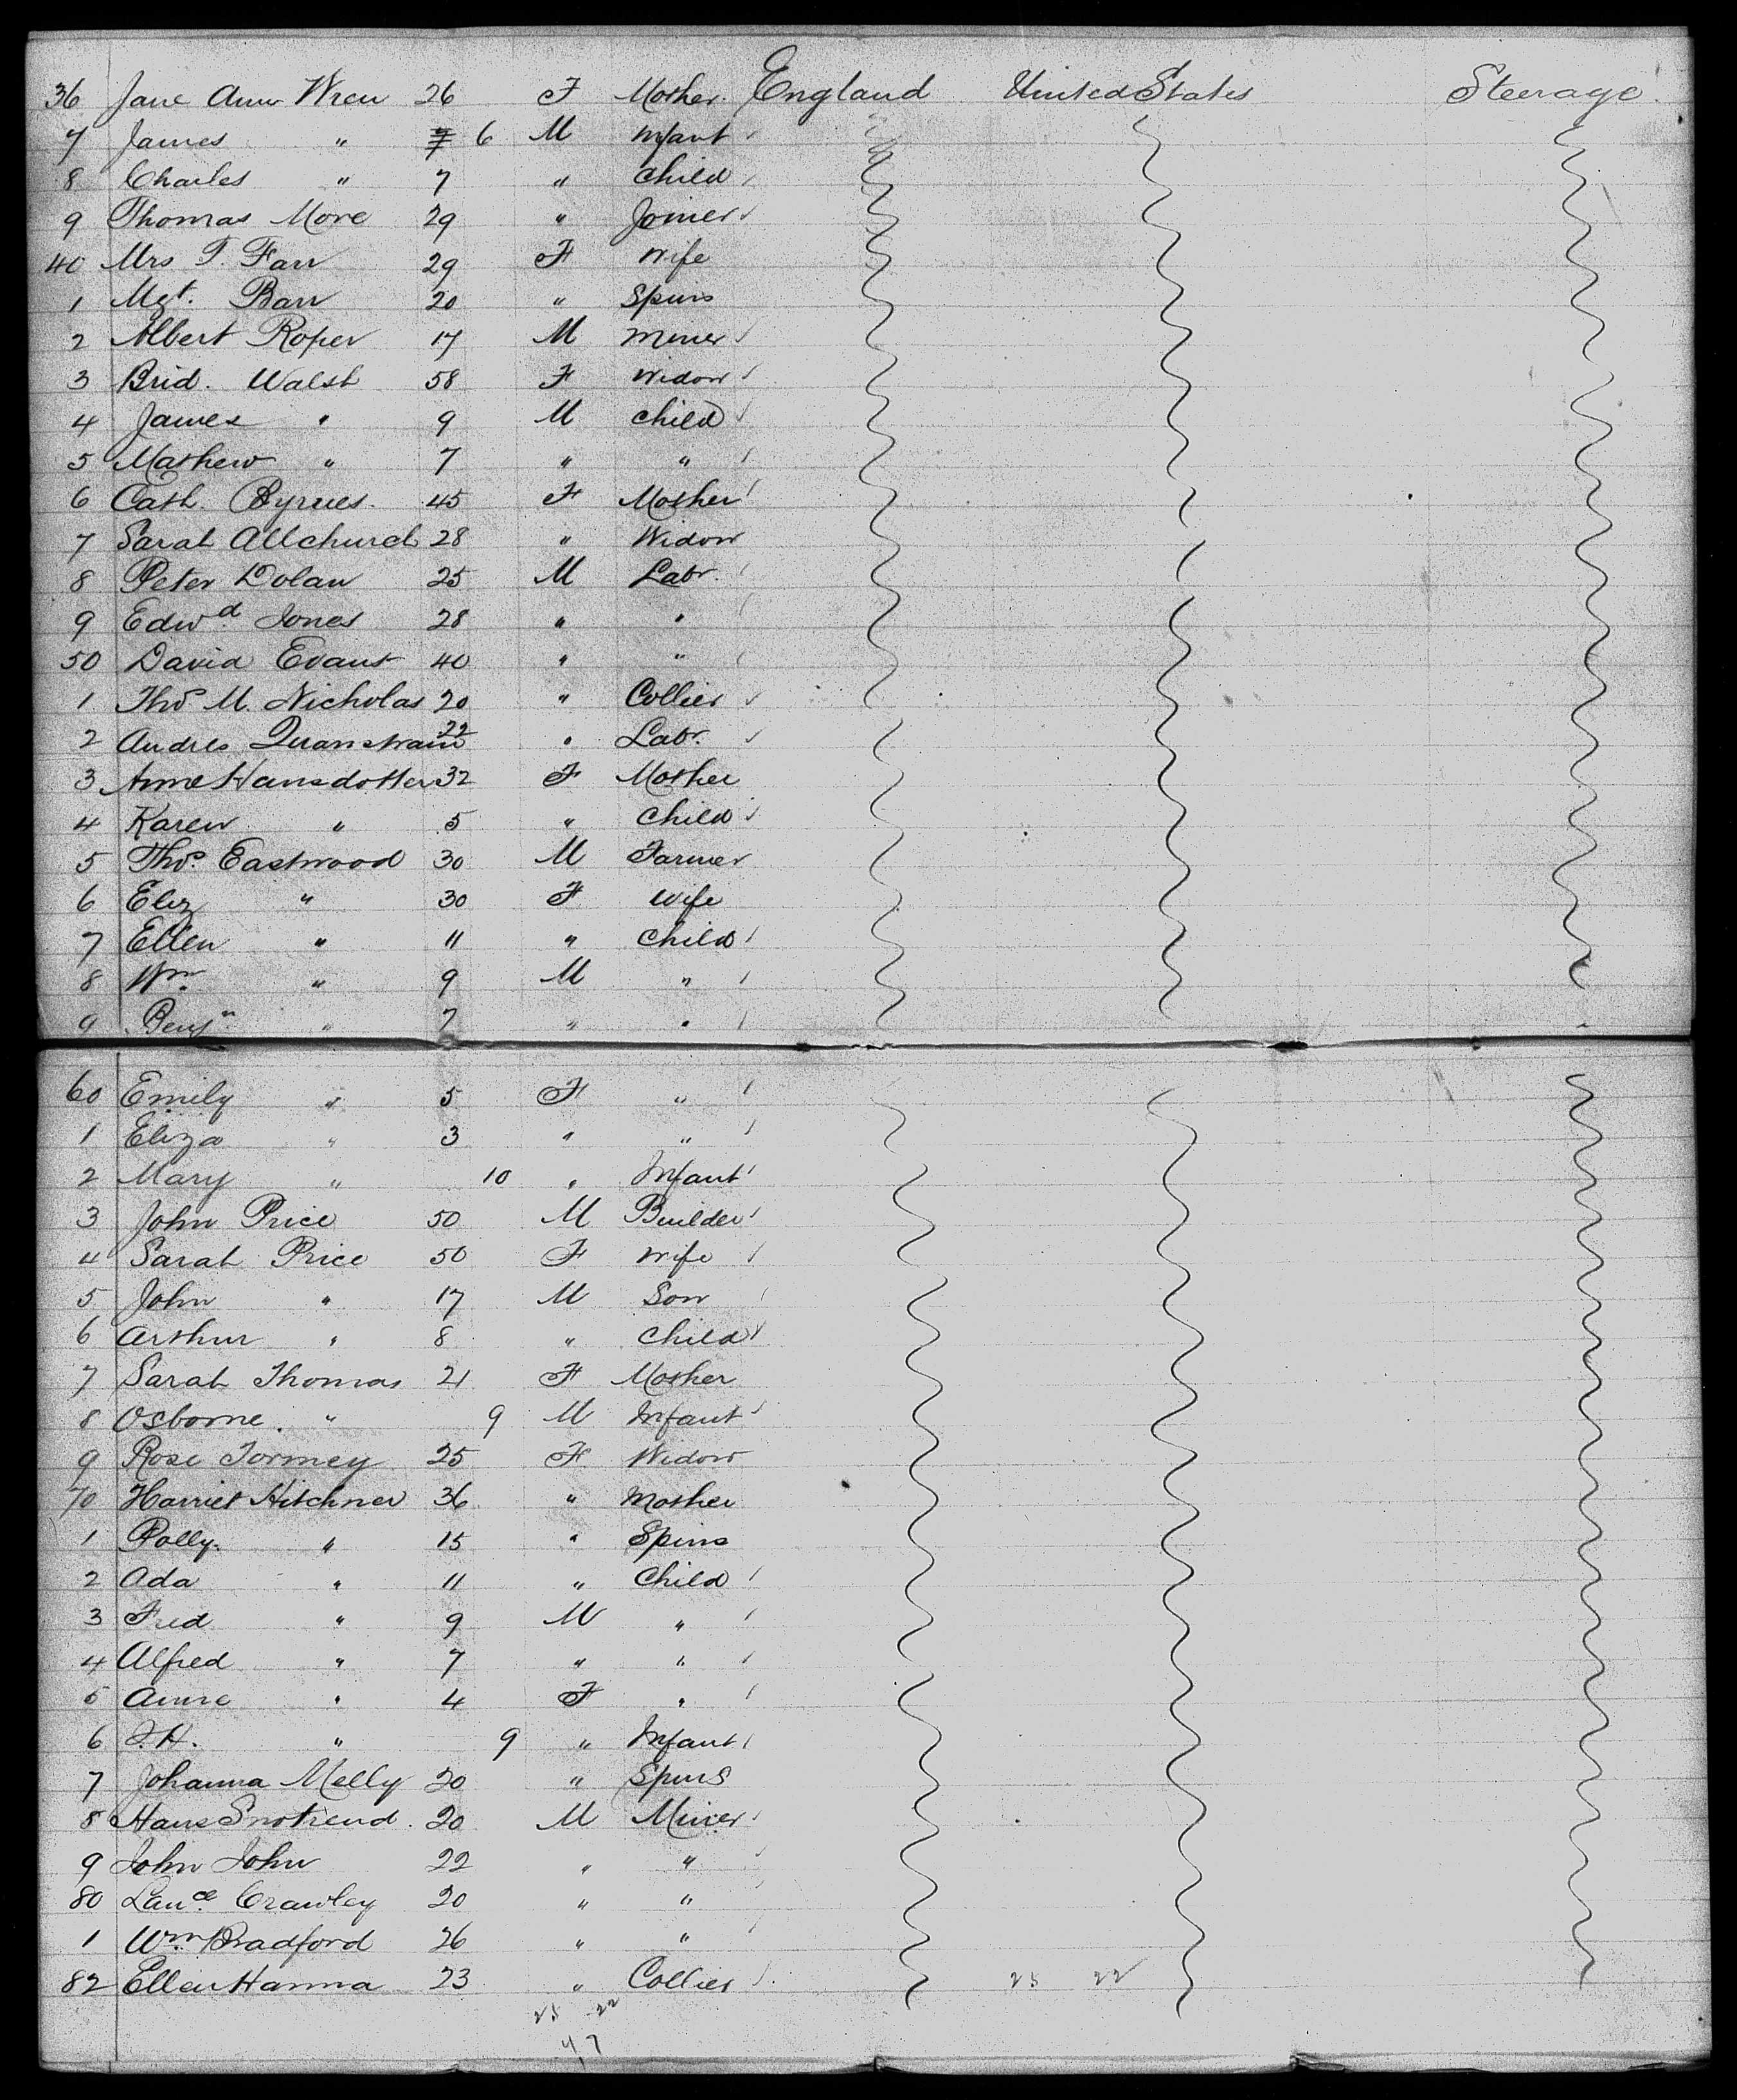 36 Jane Ann Wren 26 F Mother England United States Steerage
7 James " 6 M Infant
8 Charles " 7 " Child
9 Thomas More 29 " Joiner
40 Mrs T. Farr 29 F Wife
1 Mgt. Barr 20 " Spins
2 Albert Roper 17 M Miner
3 Brid. Walsh 58 F Widow
4 James " 9 M Child
5 Mathew " 7 " "
6 Cath. Byrnes 45 F Mother
7 Sarah Allchurch 28 " Widow
8 Peter Dolan 25 M Labr.
9 Edwd Jones 28 " "
50 David Evans 40 " "
1 Thos M. Nicholas 20 " Collier
2 Andres 22 " Labr.
3 Anne Hansdotter 32 F Mother
4 Karen " 5 " Child
5 Thos. Eastwood 30 M Farmer
6 Eliz " 30 F Wife
7 Ellen " 11 " Child
8 Wm. " 9 M "
9 Benjn " 7 " "
60 Emily " 5 F "
1 Eliza " 3 " "
2 Mary " 10 " Infant
3 John Price 50 M Builder
4 Sarah Price 50 F Wife
5 John " 17 M Son
6 Arthur " 8 " Child
7 Sarah Thomas 21 F Mother
8 Osborne " 9 M Infant
9 Rose Tormey 25 F Widow
70 Harriet Hitchner 36 " Mother
1 Polly " 15 " Spins
2 Ada " 11 " Child
3 Fred " 9 M "
4 Alfred " 7 " "
5 Anne " 4 F "
6 J.H. " 9 " Infant
7 Johanna Melly 20 " Spins
8 Hans 20 M Miner
9 John John 22 " "
80 Lance. Crawley 20 " "
1 Wm. Bradford 26 " "
82 Ellen Hanna 23 " Collier 25 22
25 22
47